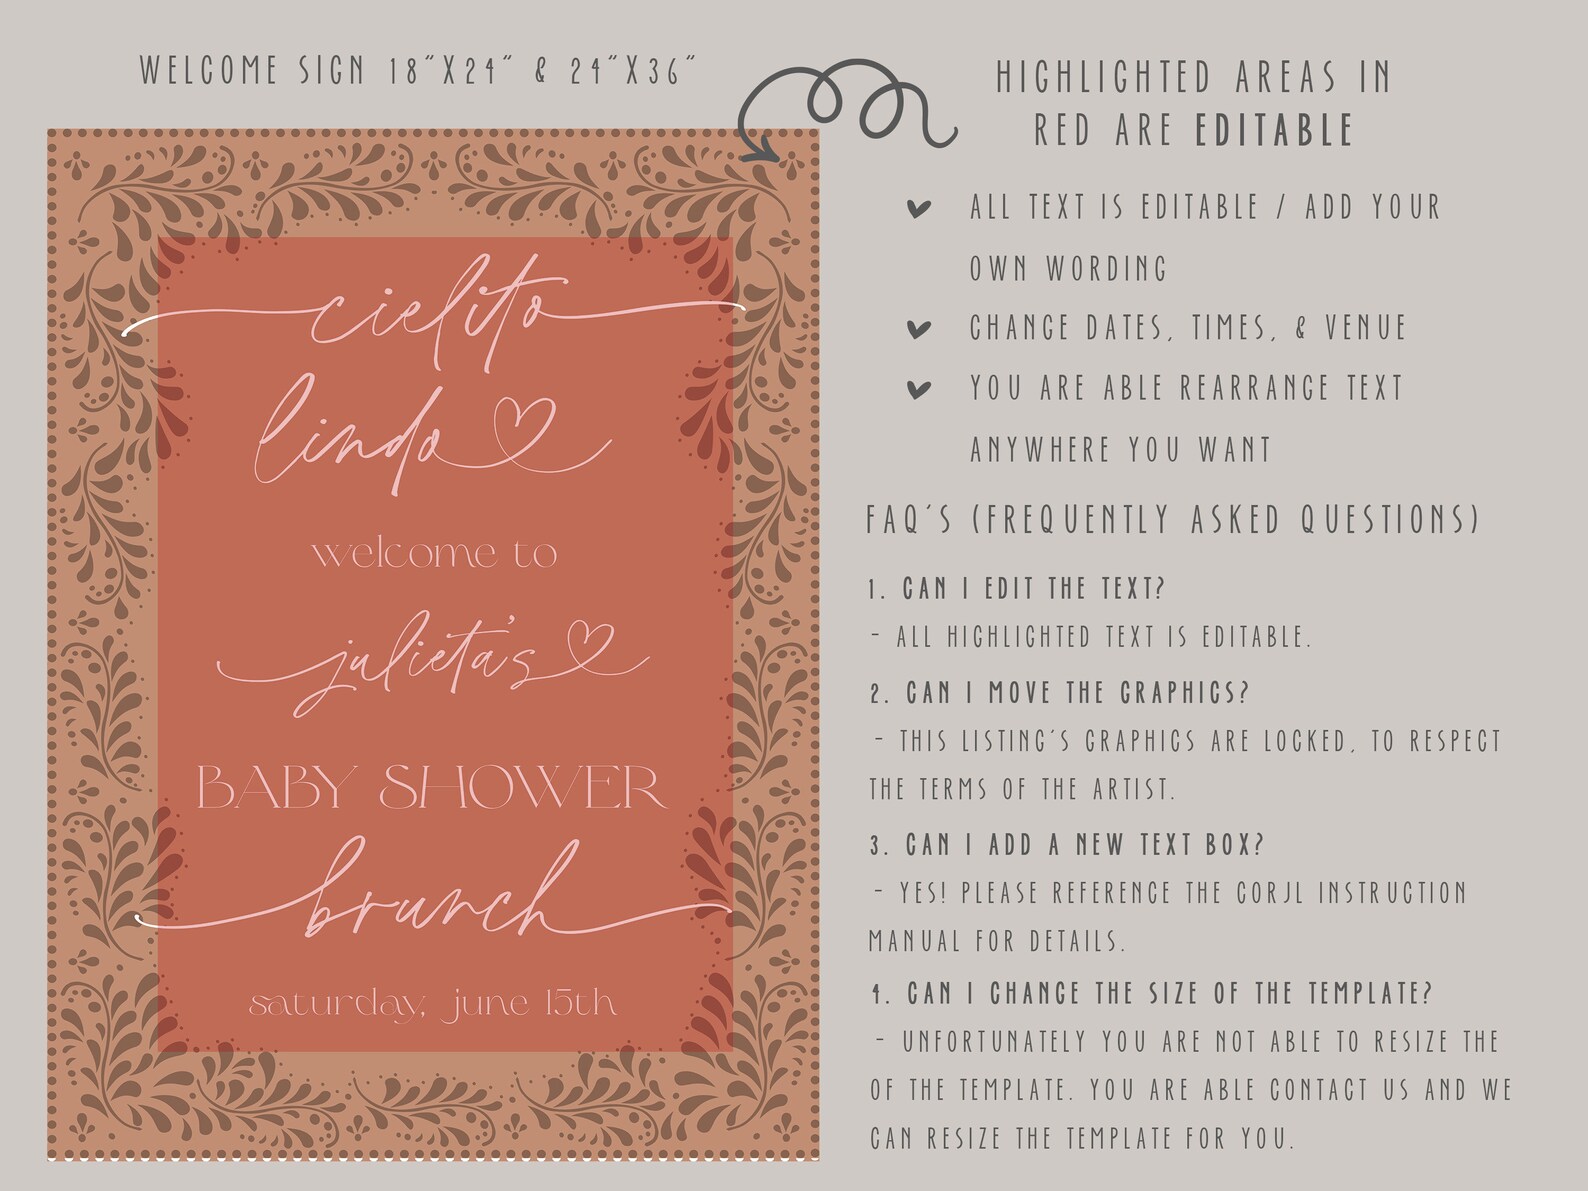 WELCOME SIGN 18"X24" & 24"X36"
cielito
lindo
welcome to
julieta's
BABY SHOWER
brunch
saturday, june 15th
HIGHLIGHTED AREAS IN
RED ARE EDITABLE
ALL TEXT IS EDITABLE / ADD YOUR
OWN WORDING
CHANGE DATES, TIMES, & VENUE
YOU ARE ABLE REARRANGE TEXT
ANYWHERE YOU WANT
FAQ'S (FREQUENTLY ASKED QUESTIONS)
1. CAN I EDIT THE TEXT?
- ALL HIGHLIGHTED TEXT IS EDITABLE.
2. CAN I MOVE THE GRAPHICS?
- THIS LISTING'S GRAPHICS ARE LOCKED, TO RESPECT
THE TERMS OF THE ARTIST.
3. CAN I ADD A NEW TEXT BOX?
- YES! PLEASE REFERENCE THE CORJL INSTRUCTION
MANUAL FOR DETAILS.
4. CAN I CHANGE THE SIZE OF THE TEMPLATE?
- UNFORTUNATELY YOU ARE NOT ABLE TO RESIZE THE
OF THE TEMPLATE. YOU ARE ABLE CONTACT US AND WE
CAN RESIZE THE TEMPLATE FOR YOU.